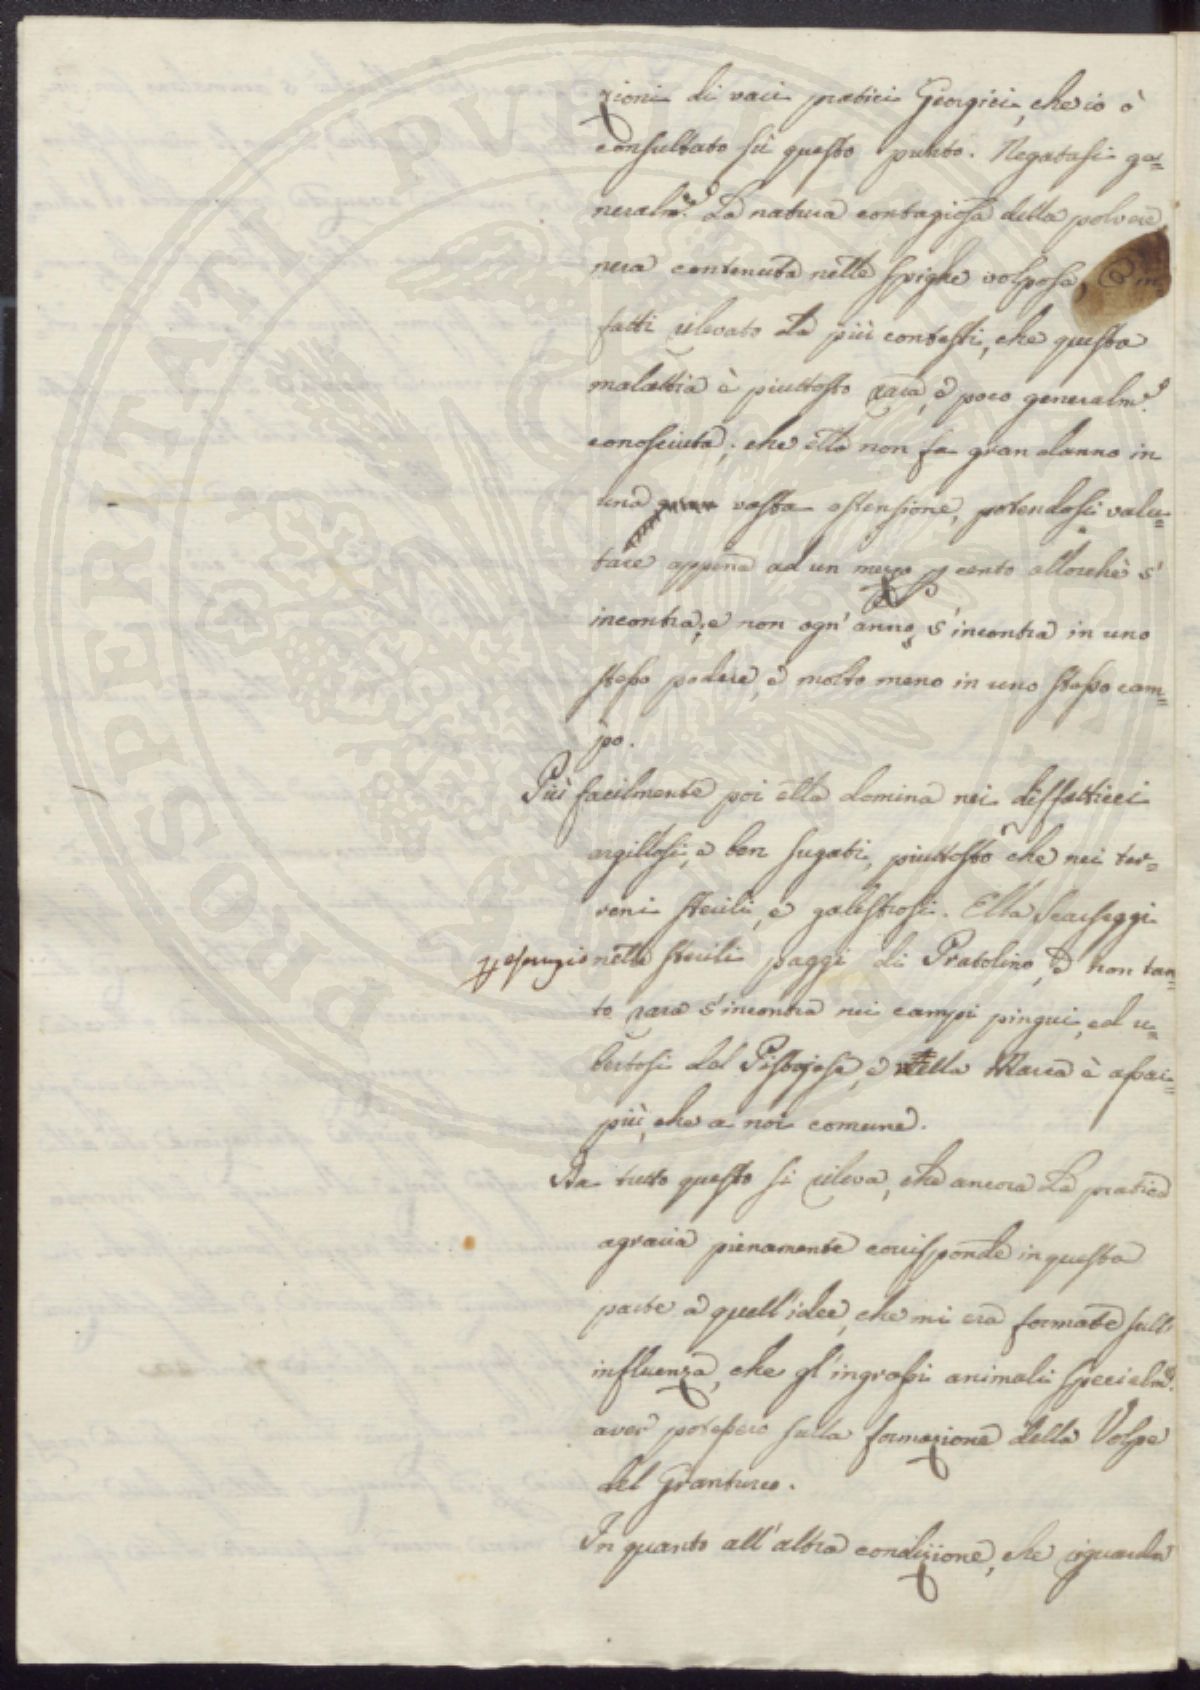 zioni di varj pratici Georgici, che io ò
consultato sù questo punto. Negatasi ge=
neralm.e la natura contagiosa della polvere
nera contenuta nelle spighe volpose, È in=
fatti rilevato da più contesti, che questa
malattia è piuttosto rara, e poco generalm.e
conosciuta; che ella non fa gran danno in
una vasta estensione, potendosi valu=
tare appena ad un mezzo p cento allorchè s'
incontra; e non ogn'anno s'incontra in uno
stesso podere, e molto meno in uno stesso cam=
po.
Più facilmente poi ella domina nei diffatticci
argillosi, e ben sugati, piuttosto che nei ter=
reni sterili, e galestrosi. Ella scarseggi
p esempio nelle sterili piaggi di Pratolino, e non tan=
to rara s'incontra nei campi pingui, ed u=
bertosi del Pistojese, e nella Marca è assai
più, che a noi comune.
Da tutto questo si rileva, che ancora la pratica
agraria pienamente corrisponde in questa
parte a quell'idee, che mi era formate sull'
influenza, che gl'ingrassi animali specialm.e
aver potessero sulla formazione della Volpe
del Granturco.
In quanto all'altra condizione, che riguarda
PROSPERITATI PVBLICAE